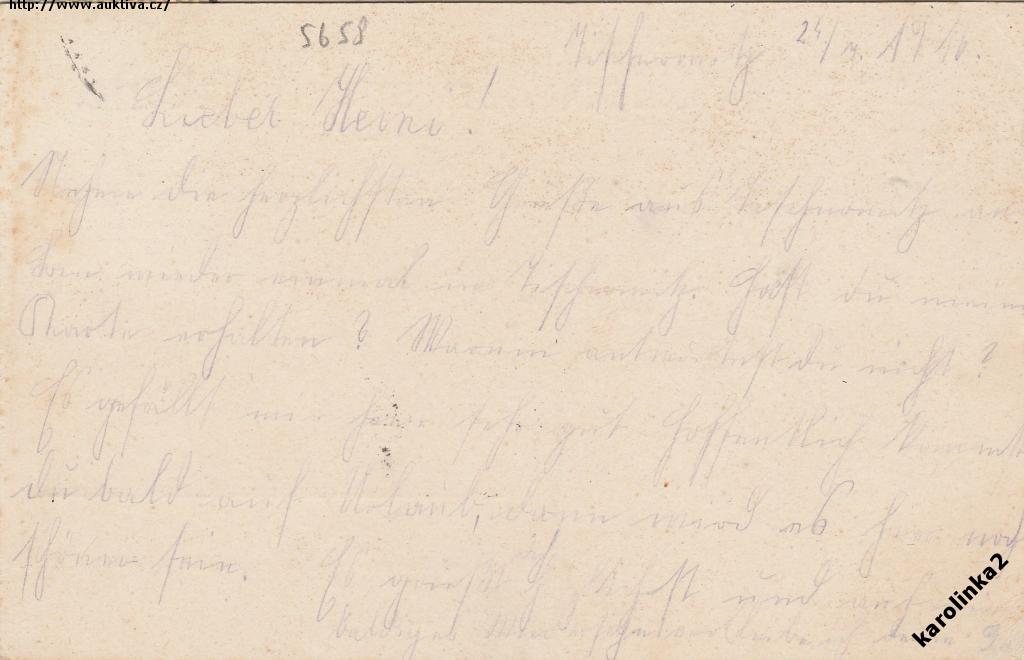 http://www.auktiva.cz/
5658
Tischnowitz 24/ 1916.
Lieber Heini!
Nehme die herzlichsten Grüße aus Tischnowitz an
Bin wieder einmal in Tischnowitz. Hast du meine
Karte erhalten? Warum antwortest du nicht?
Es gefällt mir hier sehr gut hoffentlich kommst
du bald auf Urlaub, dann wird es hier noch
schöner sein. Es grüßt und auf
baldiges Wiedersehen
karolinka2